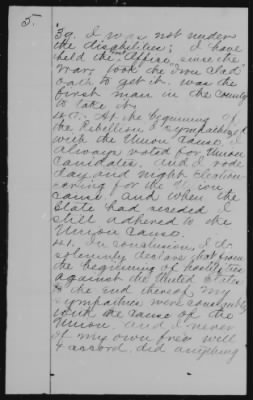 5.
39. I was not under
the disabilities; I have
held the offices since the
War, took the "Iron Clad"
oath to get it. was the
first man in the County
to take it.
40. At the beginning of
the Rebellion I sympathized
with the Union Cause, I
always voted for Union
Canidates, and I rode
day and night election-
eering for the Union
cause, and when the
State had seceded I
still adhered to the
Union Cause.
41. In conclusion, I do
solemnly declare that from
the beginning of hostilities
against the United States
to the end thereof, my
sympathies were constantly
with the cause of the
Union, and I never
of my own free will
& accord, did anything